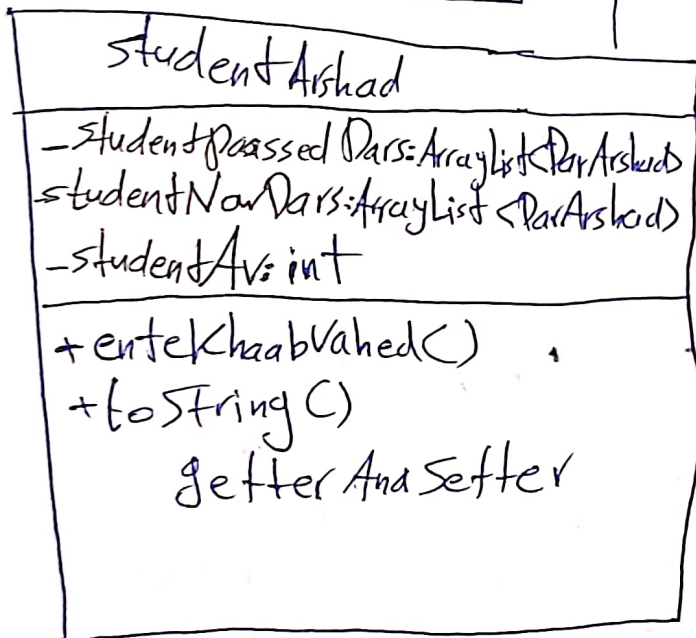 studentArshad
-studentpaassed Dars:ArrayList<ParArshad>
-studentNowDars:ArrayList<DarArshad>
-studentAv: int
+entekhaabVahed()
+toString()
getter And Setter